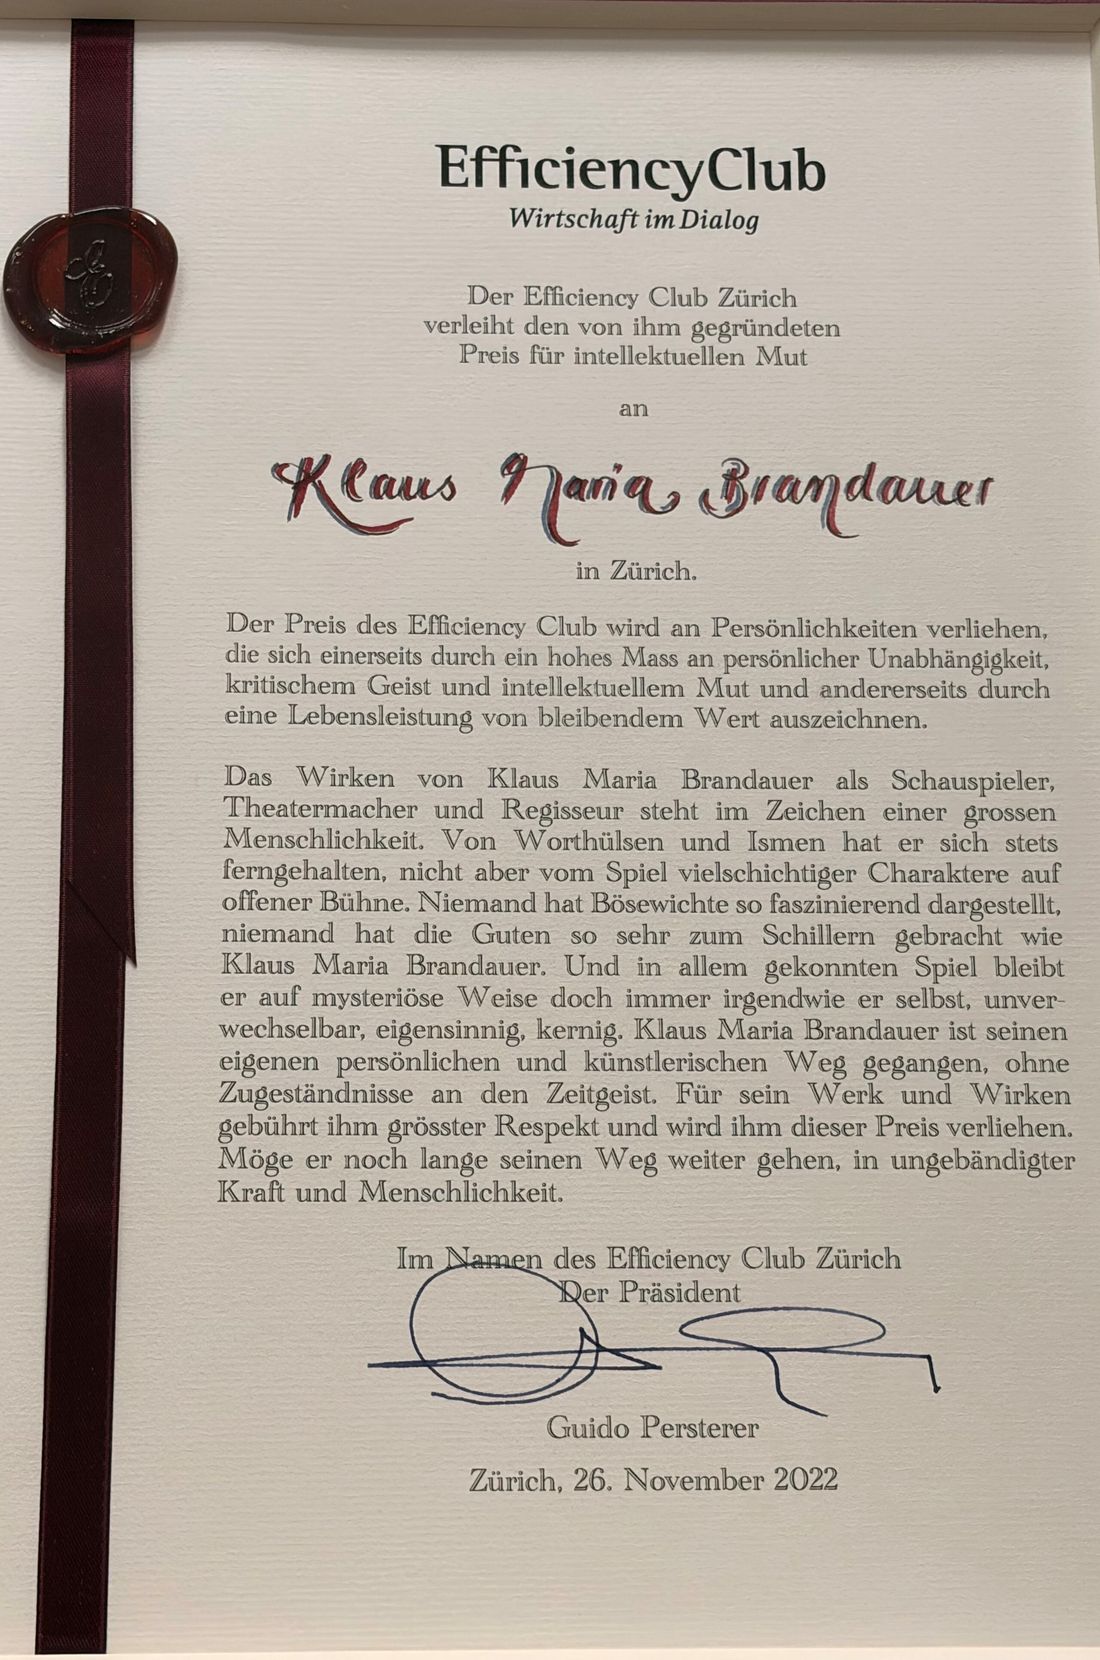 EfficiencyClub
Wirtschaft im Dialog
Der Efficiency Club Zürich
verleiht den von ihm gegründeten
Preis für intellektuellen Mut
an
Klaus Maria Brandauer
in Zürich.
Der Preis des Efficiency Club wird an Persönlichkeiten verliehen,
die sich einerseits durch ein hohes Mass an persönlicher Unabhängigkeit,
kritischem Geist und intellektuellem Mut und andererseits durch
eine Lebensleistung von bleibendem Wert auszeichnen.
Das Wirken von Klaus Maria Brandauer als Schauspieler,
Theatermacher und Regisseur steht im Zeichen einer grossen
Menschlichkeit. Von Worthülsen und Ismen hat er sich stets
ferngehalten, nicht aber vom Spiel vielschichtiger Charaktere auf
offener Bühne. Niemand hat Bösewichte so faszinierend dargestellt,
niemand hat die Guten so sehr zum Schillern gebracht wie
Klaus Maria Brandauer. Und in allem gekonnten Spiel bleibt
er auf mysteriöse Weise doch immer irgendwie er selbst, unver-
wechselbar, eigensinnig, kernig. Klaus Maria Brandauer ist seinen
eigenen persönlichen und künstlerischen Weg gegangen, ohne
Zugeständnisse an den Zeitgeist. Für sein Werk und Wirken
gebührt ihm grösster Respekt und wird ihm dieser Preis verliehen.
Möge er noch lange seinen Weg weiter gehen, in ungebändigter
Kraft und Menschlichkeit.
Im Namen des Efficiency Club Zürich
Der Präsident
Guido Persterer
Zürich, 26. November 2022